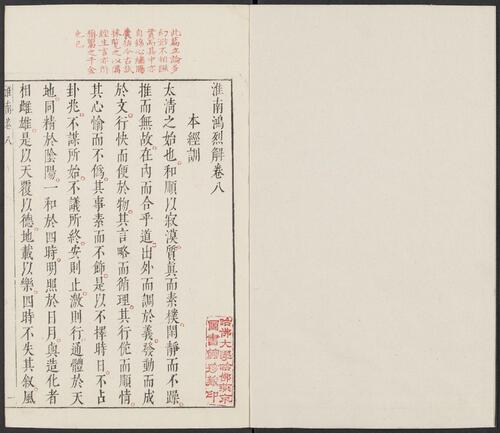 此篇立論多
自錦心繡腸
淮南鴻烈解卷八
本經訓
太清之始也和順以寂漠質眞而素樸閑靜而不躁
推而無故在內而合乎道出外而調於義發動而成
於文行快而便於物其言略而循理其行侻而順情
其心愉而不僞其事素而不飾是以不擇時日不占
卦兆不謀所始不議所終安則止激則行通體於天
地同精於陰陽一和於四時明照於日月與造化者
相雌雄是以天覆以德地載以樂四時不失其叙風
淮南卷八
哈佛大學哈佛燕京
圖書館珍藏印